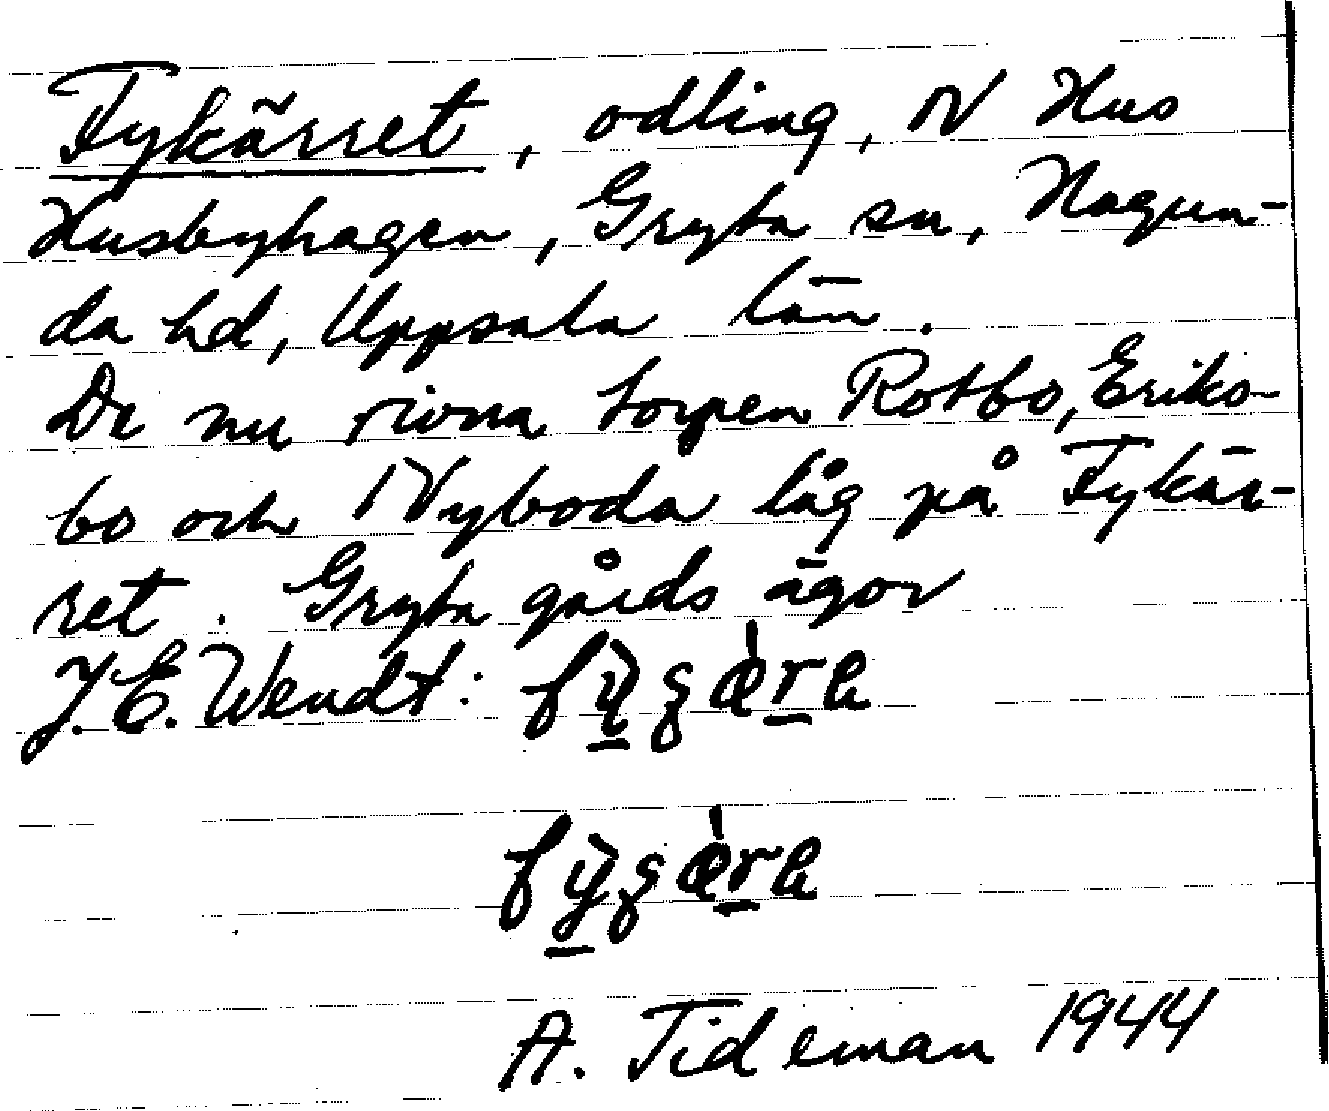 Fykärret, odling, N Hus
Husbyhagen, Gryta sn, Hagun-
da hd, Uppsala län.
De nu rivna torpen Rotbo, Eriks-
bo och Nyboda låg på Fykär-
ret. Gryta gårds ägor
J. E. Wendt:
A. Tideman 1944